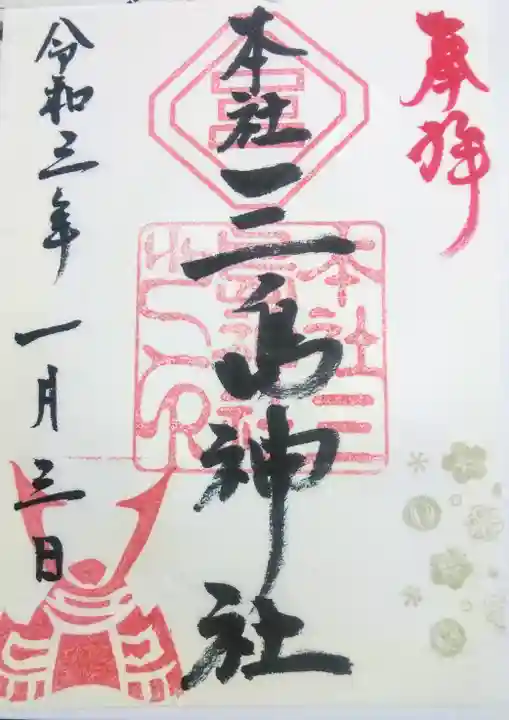 奉拝
本社三島神社
令和三年一月三日
本社三
島神社
之印